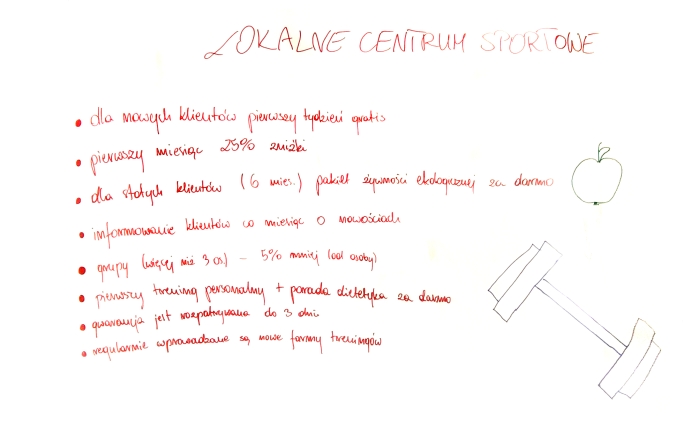 LOKALNE CENTRUM SPORTOWE
• dla nowych klientów pierwszy tydzień gratis
• pierwszy miesiąc 25% zniżki
• dla stałych klientów (6 mies.) pakiet żywności ekologicznej za darmo
• informowanie klientów co miesiąc o nowościach
• grupy (więcej niż 3 os) – 5% mniej (od osoby)
• pierwszy trening personalny + porada dietetyka za darmo
• gwarancja jest rozpatrywana do 3 dni
• regularnie wprowadzane są nowe formy treningów